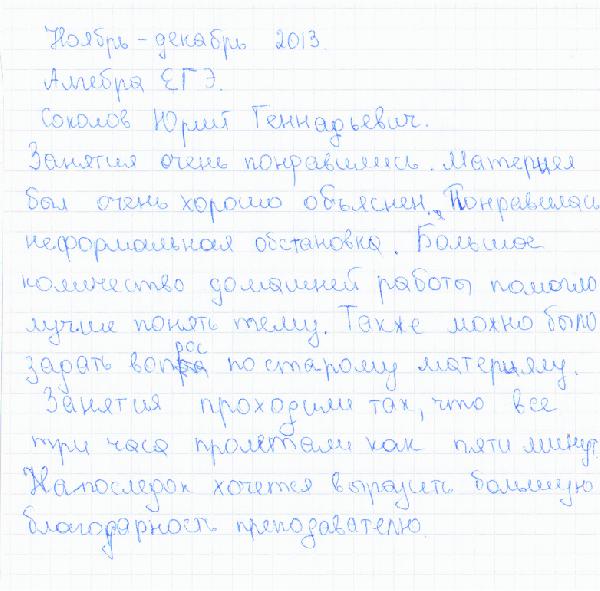 Ноябрь - декабрь 2013.
Алгебра ЕГЭ.
Соколов Юрий Геннадьевич.
Занятия очень понравились. Материал
был очень хорошо объяснен. Понравилась
неформальная обстановка. Большое
количество домашней работы помогло
лучше понять тему. Также можно было
задать вопрос по старому материялу.
Занятия проходили так, что все
три часа пролетали как пяти минут.
Напоследок хочется выразить большую
благодарность преподавателю.